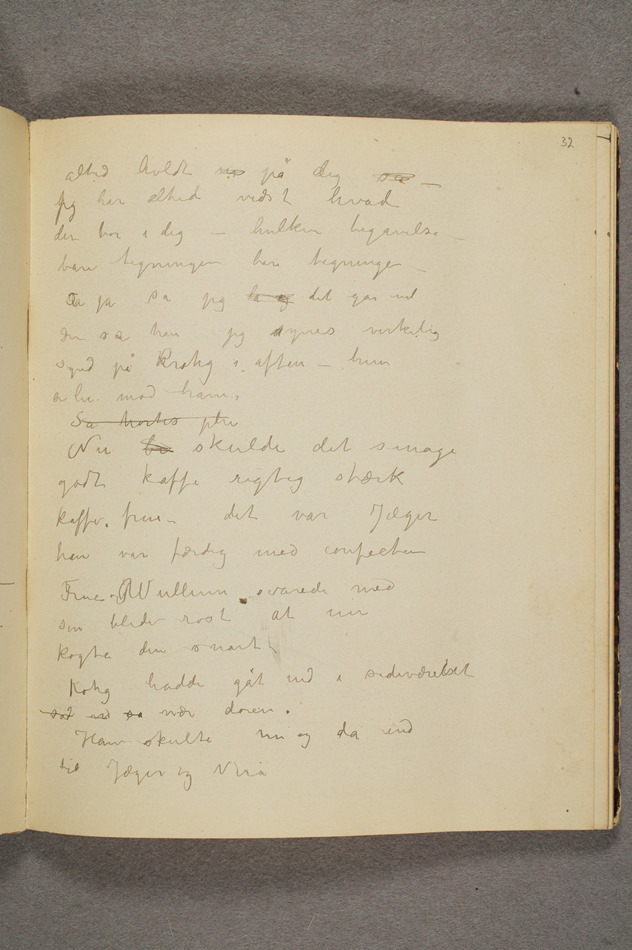 32
altid holdt på dig
jeg har altid vidst hvad
der bor i dig – hvilken begavelse –
bare tegningen bare tegningen –
Ja ja sa jeg det går nu
den sa han jeg synes virkelig
synd på Krohg i aften – hun
er mod ham.
Sa
Nu skulde det smage
godt kaffe rigtig stærk
kaffe, frue – det var Jæger
han var færdig med confecten
Frue Wullum svarede med
sin blide røst at nu
kogte den snart
Krohg hadde gåt ind i sideværelset
sat nær døren.
Han skulte nu og da ind
til Jæger og